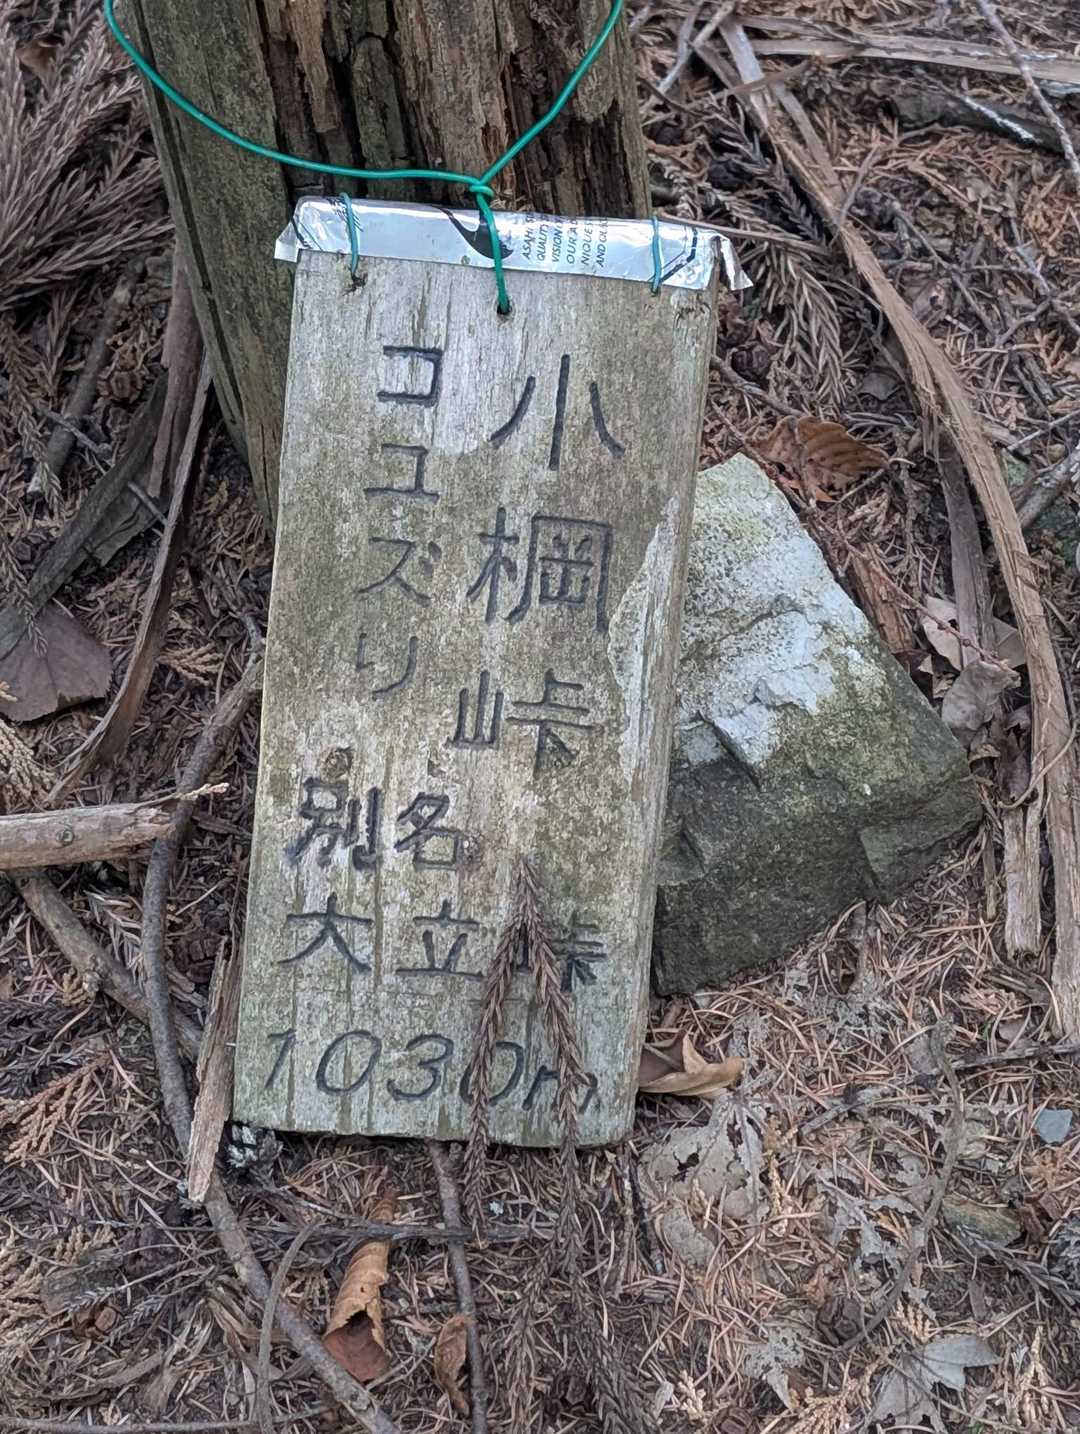 ASAHI
QUALITY
VISION
OUR
NIQUE
AND
小棡峠
コユズリ
別名
大立峠
1030m